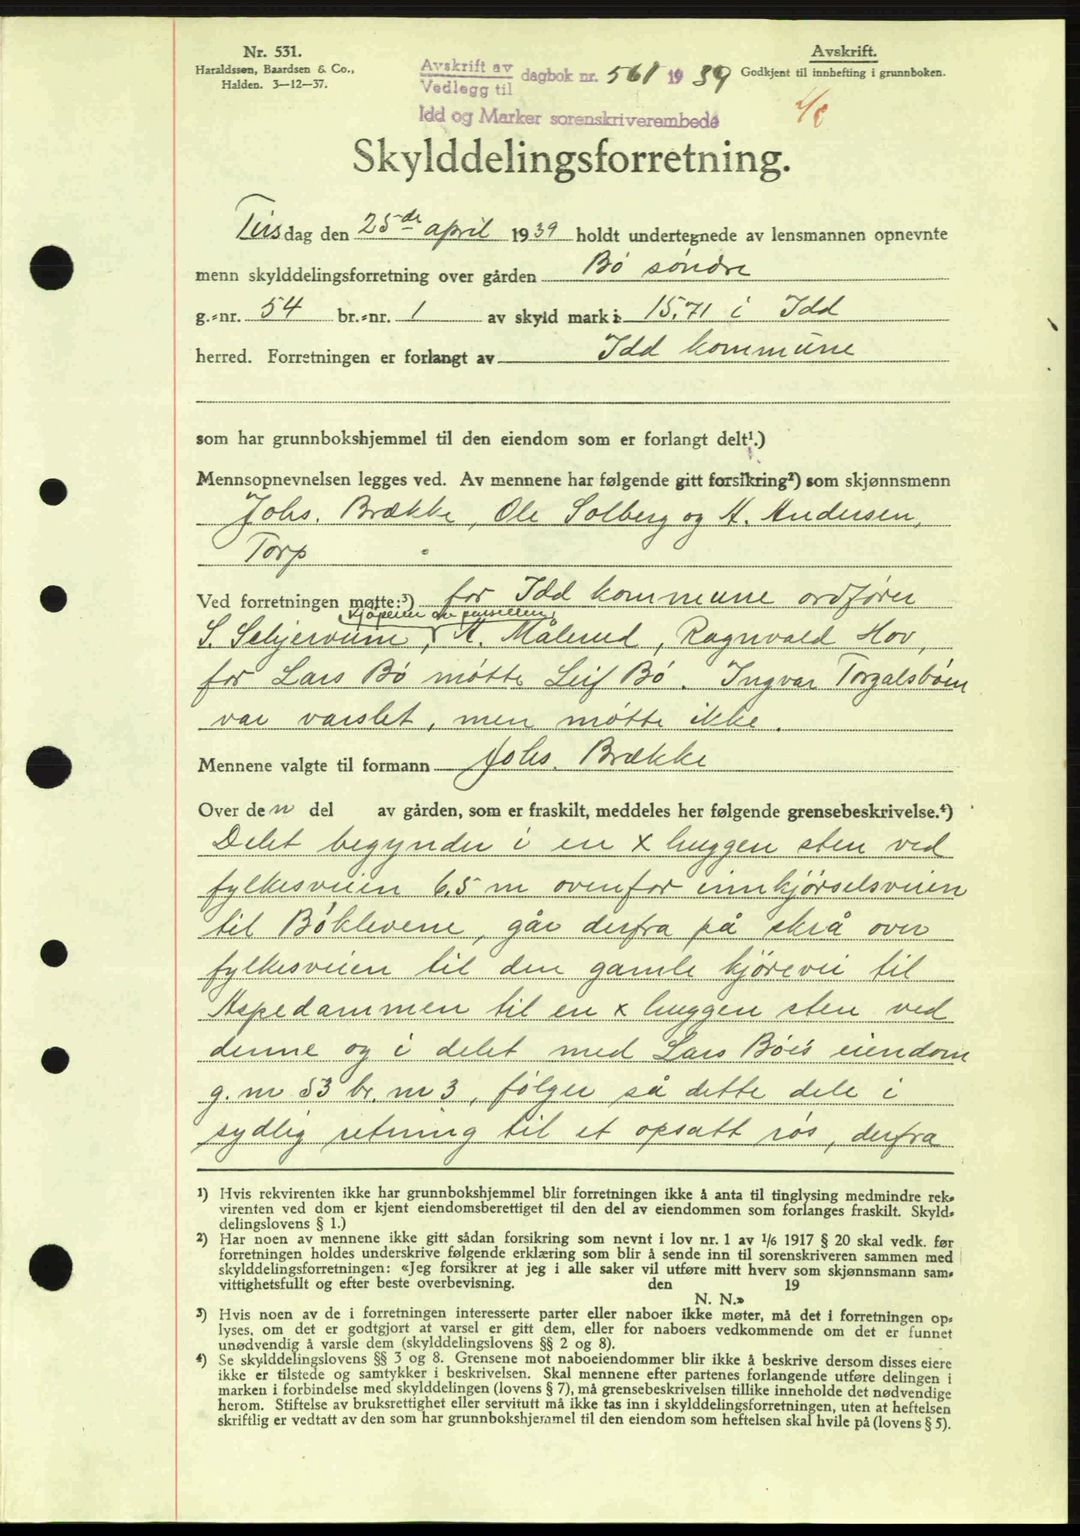 Nr. 531.
Haraldssen, Baardsen & Co.,
Halden. 3—12—37.
Avskrift av
Vedlegg til
dagbok nr. 561 1939
Idd og Marker sorenskriverembede
Avskrift.
Godkjent til innhefting i grunnboken.
Skylddelingsforretning.
Tirsdag den 25de april 1939 holdt undertegnede av lensmannen opnevnte
menn skylddelingsforretning over gården Bö söndre
g.-nr. 54 br.-nr. 1 av skyld mark 15,71 i Idd
herred. Forretningen er forlangt av Idd kommune
som har grunnbokshjemmel til den eiendom som er forlangt delt¹.)
Mennsopnevnelsen legges ved. Av mennene har følgende gitt forsikring²) som skjønnsmenn
Johs. Brække, Ole Solberg og A. Andersen,
Torp
Ved forretningen møtte:³) for Idd kommune ordförer
kjöperen av parsellen
S. Schjervum, A. Målerud, Ragnvald Hov,
for Lars Bö mötte Leif Bö. Ingvar Torgalsböen
var varslet, men mötte ikke.
Mennene valgte til formann Johs. Brække
Over den del av gården, som er fraskilt, meddeles her følgende grensebeskrivelse.⁴)
Delet begynder i en x huggen sten ved
fylkesveien 6,5 m ovenfor innkjörselsveien
til Böklevene, går derfra på skrå over
fylkesveien til den gamle kjörevei til
Aspedammen til en x huggen sten ved
denne og i delet med Lars Böes eiendom
g. nr 53 br. nr 3, fölger så dette dele i
sydlig retning til et opsatt rös, derfra
¹) Hvis rekvirenten ikke har grunnbokshjemmel blir forretningen ikke å anta til tinglysing medmindre rek-
virenten ved dom er kjent eiendomsberettiget til den del av eiendommen som forlanges fraskilt. Skyld-
delingslovens § 1.)
²) Har noen av mennene ikke gitt sådan forsikring som nevnt i lov nr. 1 av 1/6 1917 § 20 skal vedk. før
forretningen holdes underskrive følgende erklæring som blir å sende inn til sorenskriveren sammen med
skylddelingsforretningen: «Jeg forsikrer at jeg i alle saker vil utføre mitt hverv som skjønnsmann sam-
vittighetsfullt og efter beste overbevisning. den 19
N. N.»
³) Hvis noen av de i forretningen interesserte parter eller naboer ikke møter, må det i forretningen op-
lyses, om det er godtgjort at varsel er gitt dem, eller for naboers vedkommende om det er funnet
unødvendig å varsle dem (skylddelingslovens §§ 2 og 8).
⁴) Se skylddelingslovens §§ 3 og 8. Grensene mot naboeiendommer blir ikke å beskrive dersom disses eiere
ikke er tilstede og samtykker i beskrivelsen. Skal mennene efter partenes forlangende utføre delingen i
marken i forbindelse med skylddelingen (lovens § 7), må grensebeskrivelsen tillike inneholde det nødvendige
herom. Stiftelse av bruksrettighet eller servitutt må ikke tas inn i skylddelingsforretningen, uten at heftelsen
skriftlig er vedtatt av den som har grunnbokshjemmel til den eiendom som heftelsen skal hvile på (lovens § 5).